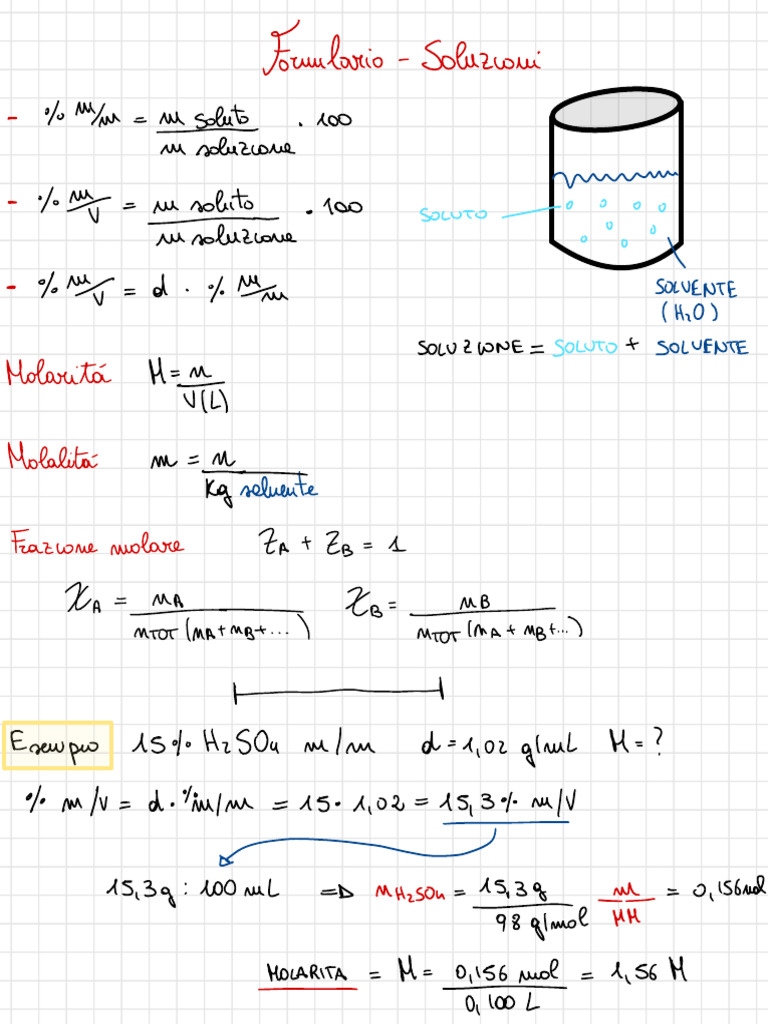 Formulario - Soluzioni
- % m/m = m soluto / m soluzione · 100
- % m/V = m soluto / m soluzione · 100
- % m/V = d · % m/m
SOLUTO
SOLVENTE
(H2O)
SOLUZIONE = SOLUTO + SOLVENTE
Molaritá M = n / V(L)
Molalitá m = n / Kg solvente
Frazione molare χA + χB = 1
χA = nA / nTOT (nA+nB+...) χB = nB / nTOT (nA+nB+...)
Esempio 15% H2SO4 m/m d=1,02 g/mL M=?
% m/v = d · % m/m = 15 · 1,02 = 15,3% m/V
15,3g : 100 mL => nH2SO4 = 15,3g / 98 g/mol m / MM = 0,156 mol
MOLARITA = M = 0,156 mol / 0,100 L = 1,56 M